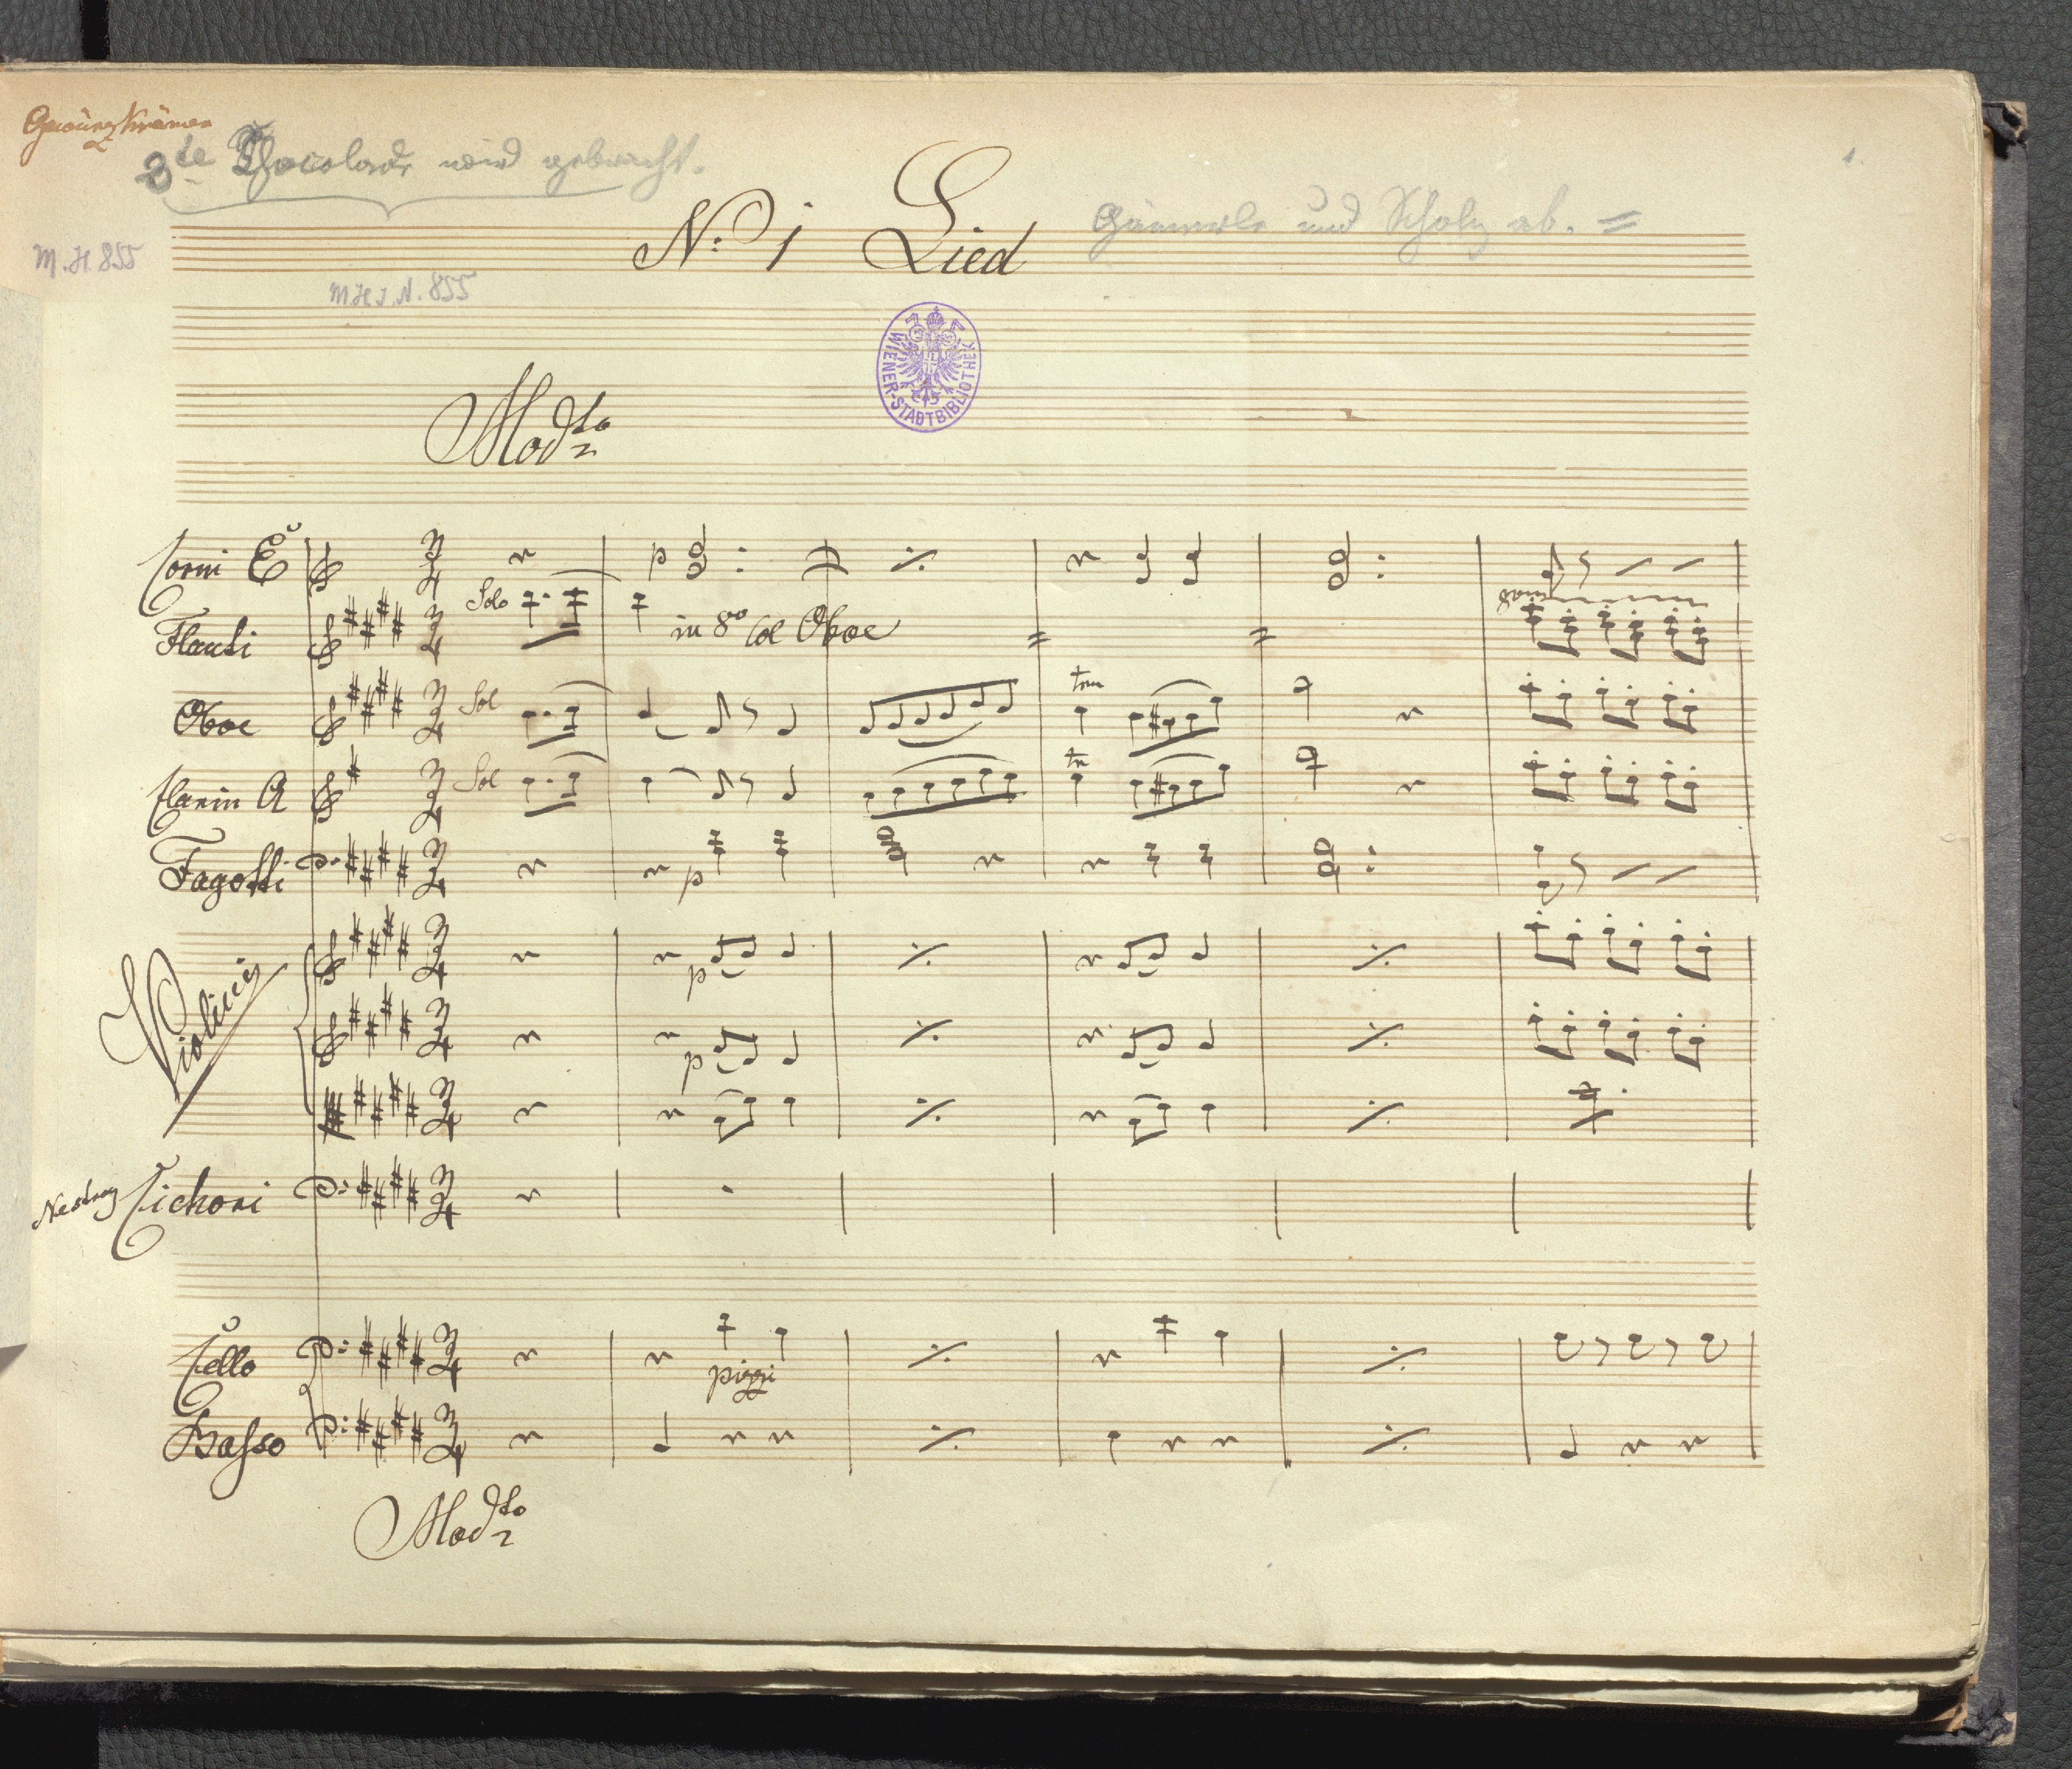 Gewürzkrämer
2te Chocolade wird gebracht.
1.
No: 1 Lied
und Scholz ab. =
M.H. 855
M.H.I.N. 855
WIENER-STADTBIBLIOTHEK
Modto
Corni E
p
Flauti
Solo
in 8va Col Oboe
8va
Oboe
Sol
trm
Clarin A
Sol
tr
Fagotti
p
Violini
p
p
Nestroy Cichori
Cello
pizzi
Basso
Modto